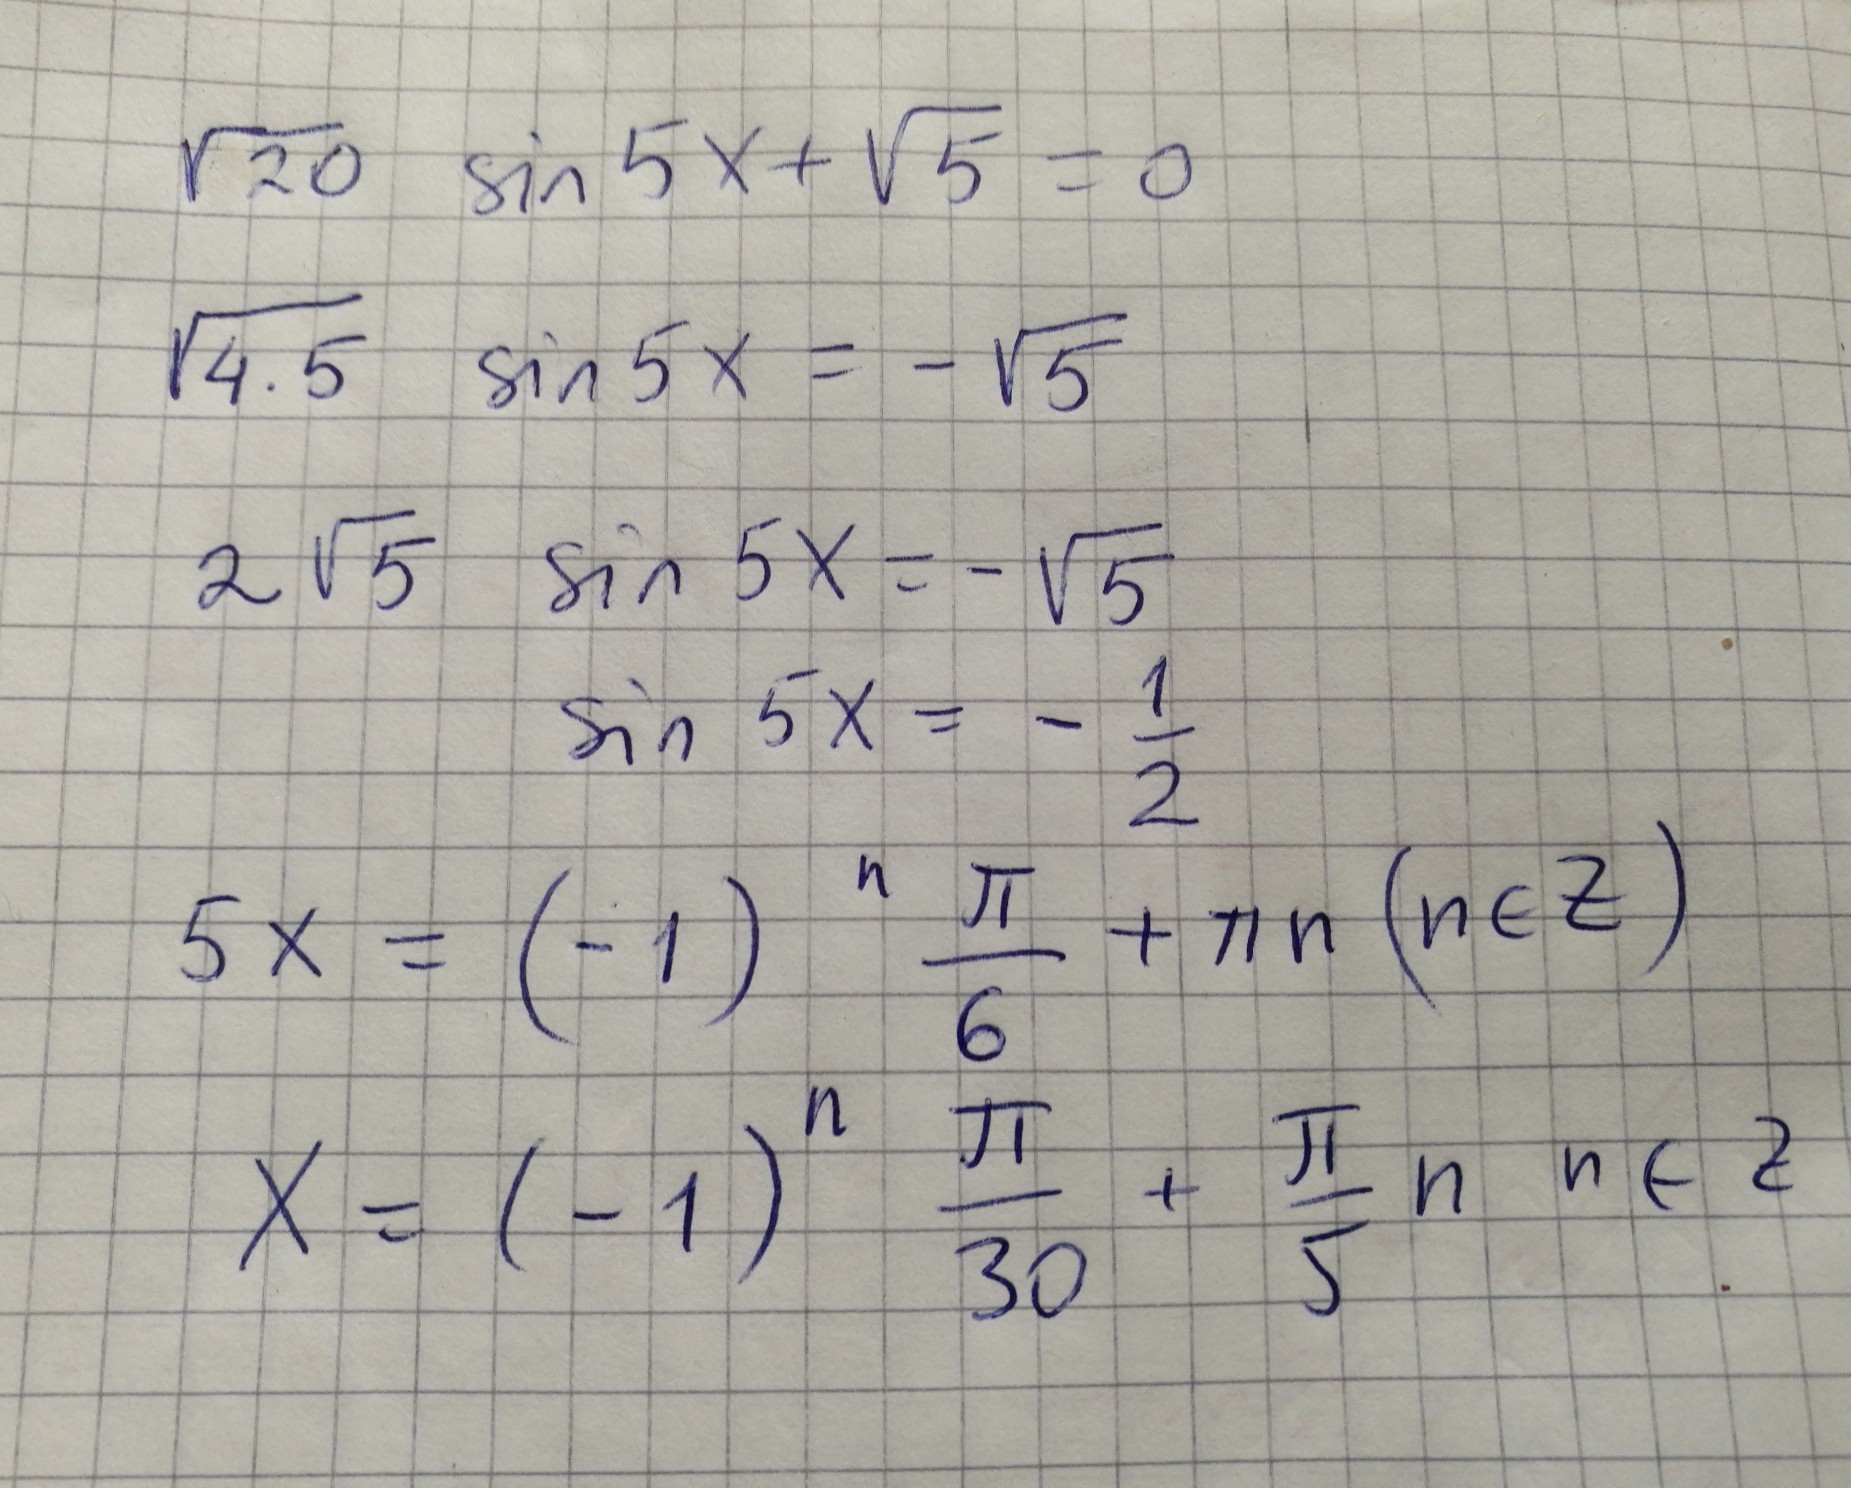 √20 sin 5x + √5 = 0
√4·5 sin 5x = - √5
2 √5 sin 5x = - √5
sin 5x = - 1/2
5x = (-1)^n π/6 + πn (n ∈ Z)
x = (-1)^n π/30 + π/5 n n ∈ Z